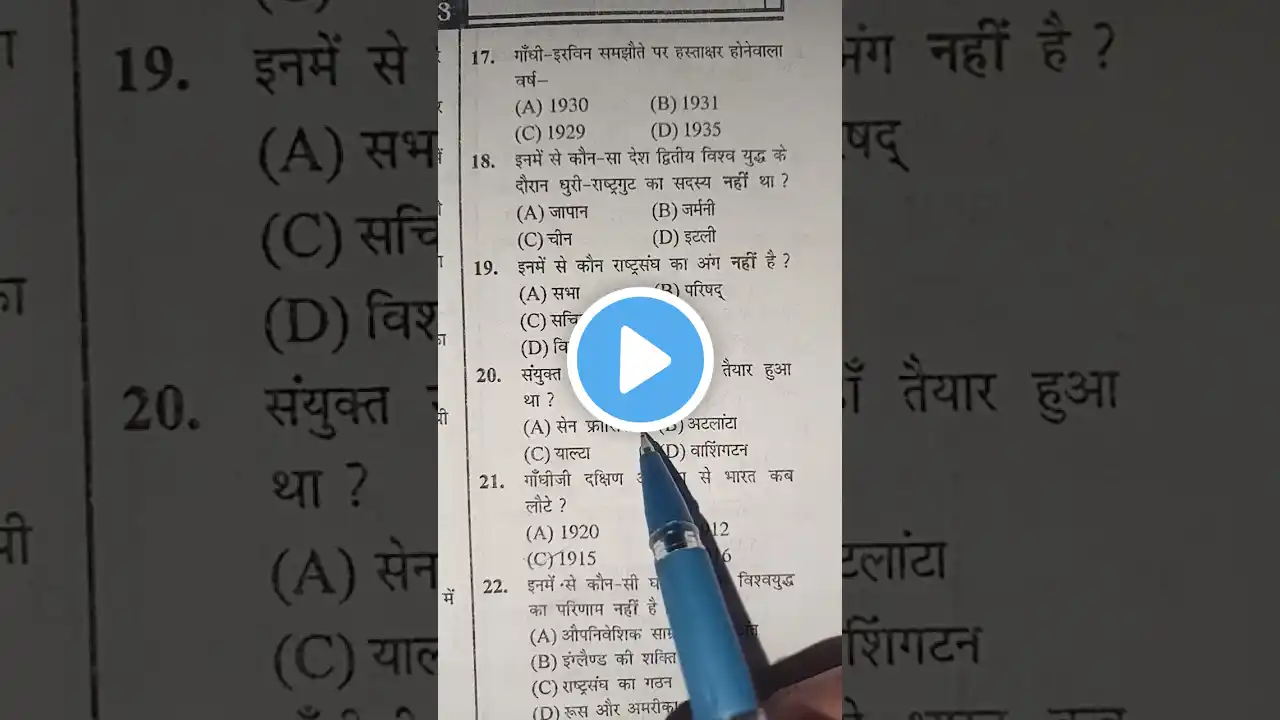 17. गाँधी-इरविन समझौते पर हस्ताक्षर होनेवाला
वर्ष–
(A) 1930 (B) 1931
(C) 1929 (D) 1935
18. इनमें से कौन-सा देश द्वितीय विश्व युद्ध के
दौरान धुरी-राष्ट्रगुट का सदस्य नहीं था ?
(A) जापान (B) जर्मनी
(C) चीन (D) इटली
19. इनमें से कौन राष्ट्रसंघ का अंग नहीं है ?
(A) सभा (B) परिषद्
(C)
(D)
20. संयुक्त तैयार हुआ
था ?
(A) सेन (B) अटलांटा
(C) याल्टा (D) वाशिंगटन
21. गाँधीजी दक्षिण से भारत कब
लौटे ?
(A) 1920
(C) 1915
22. इनमें से कौन-सी विश्वयुद्ध
का परिणाम नहीं है
(A) औपनिवेशिक
(B) इंग्लैण्ड की शक्ति
(C) राष्ट्रसंघ का गठन
(D) रूस और अमरीका